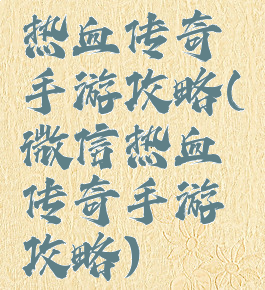 热血传奇
手游攻略(
微信热血
传奇手游
攻略)